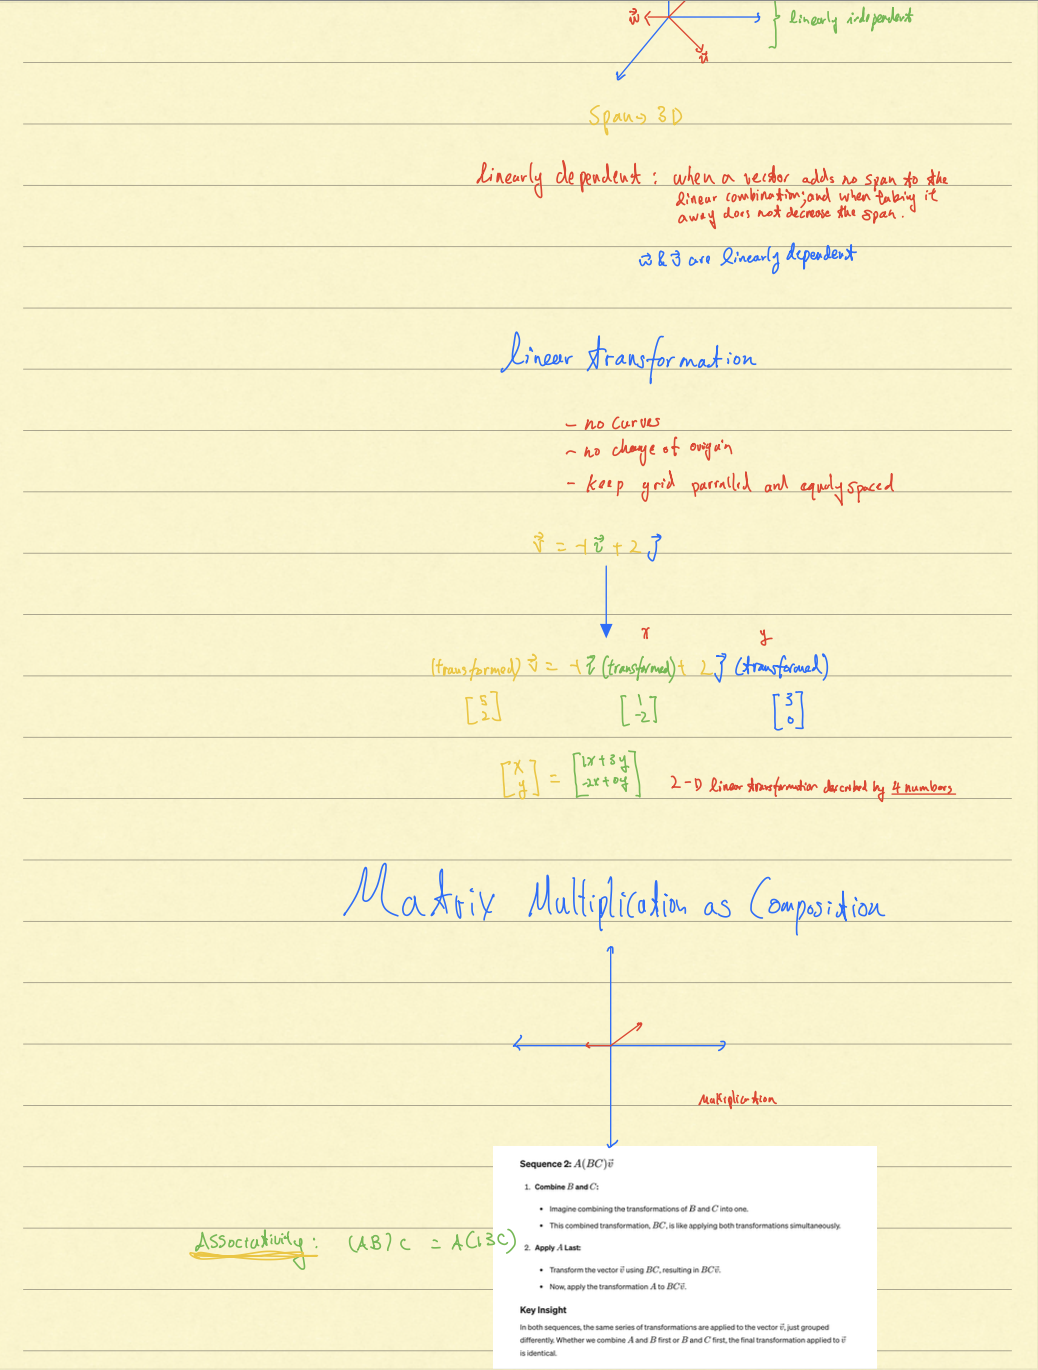 w⃗
u⃗
} linearly independent
Span → 3D
linearly dependent : when a vector adds no span to the
linear combination; and when taking it
away does not decrease the span.
w⃗ & v⃗ are linearly dependent
linear transformation
- no curves
- no change of origin
- keep grid parralled and equaly spaced
v⃗ = -1 i⃗ + 2 j⃗
x y
(transformed) v⃗ = -1 i⃗ (transformed) + 2 j⃗ (transformed)
[5 2] [1 -2] [3 0]
[x y] = [1x+3y -2x+0y] 2-D linear transformation described by 4 numbers
Matrix Multiplication as Composition
Multiplication
Sequence 2: A(BC)v⃗
1. Combine B and C:
• Imagine combining the transformations of B and C into one.
• This combined transformation, BC, is like applying both transformations simultaneously.
Associativity : (AB)C = A(BC)
2. Apply A Last:
• Transform the vector v⃗ using BC, resulting in BCv⃗.
• Now, apply the transformation A to BCv⃗.
Key Insight
In both sequences, the same series of transformations are applied to the vector v⃗, just grouped
differently. Whether we combine A and B first or B and C first, the final transformation applied to v⃗
is identical.